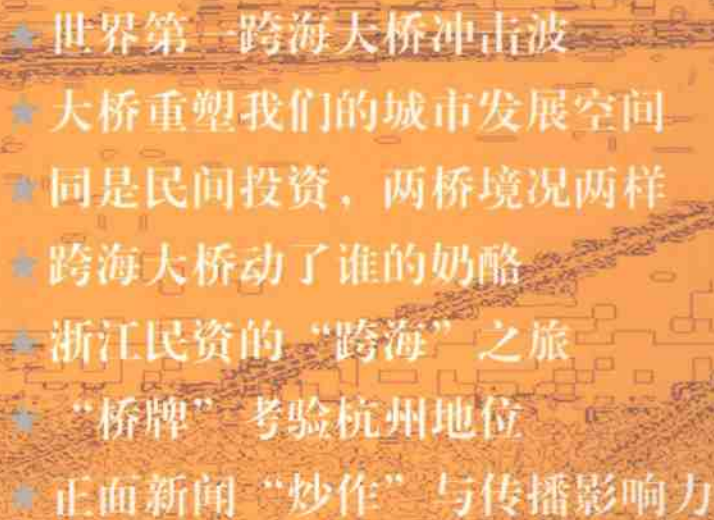 ★世界第一跨海大桥冲击波
★大桥重塑我们的城市发展空间
★同是民间投资，两桥境况两样
★跨海大桥动了谁的奶酪
★浙江民资的“跨海”之旅
★“桥牌”考验杭州地位
★正面新闻“炒作”与传播影响力